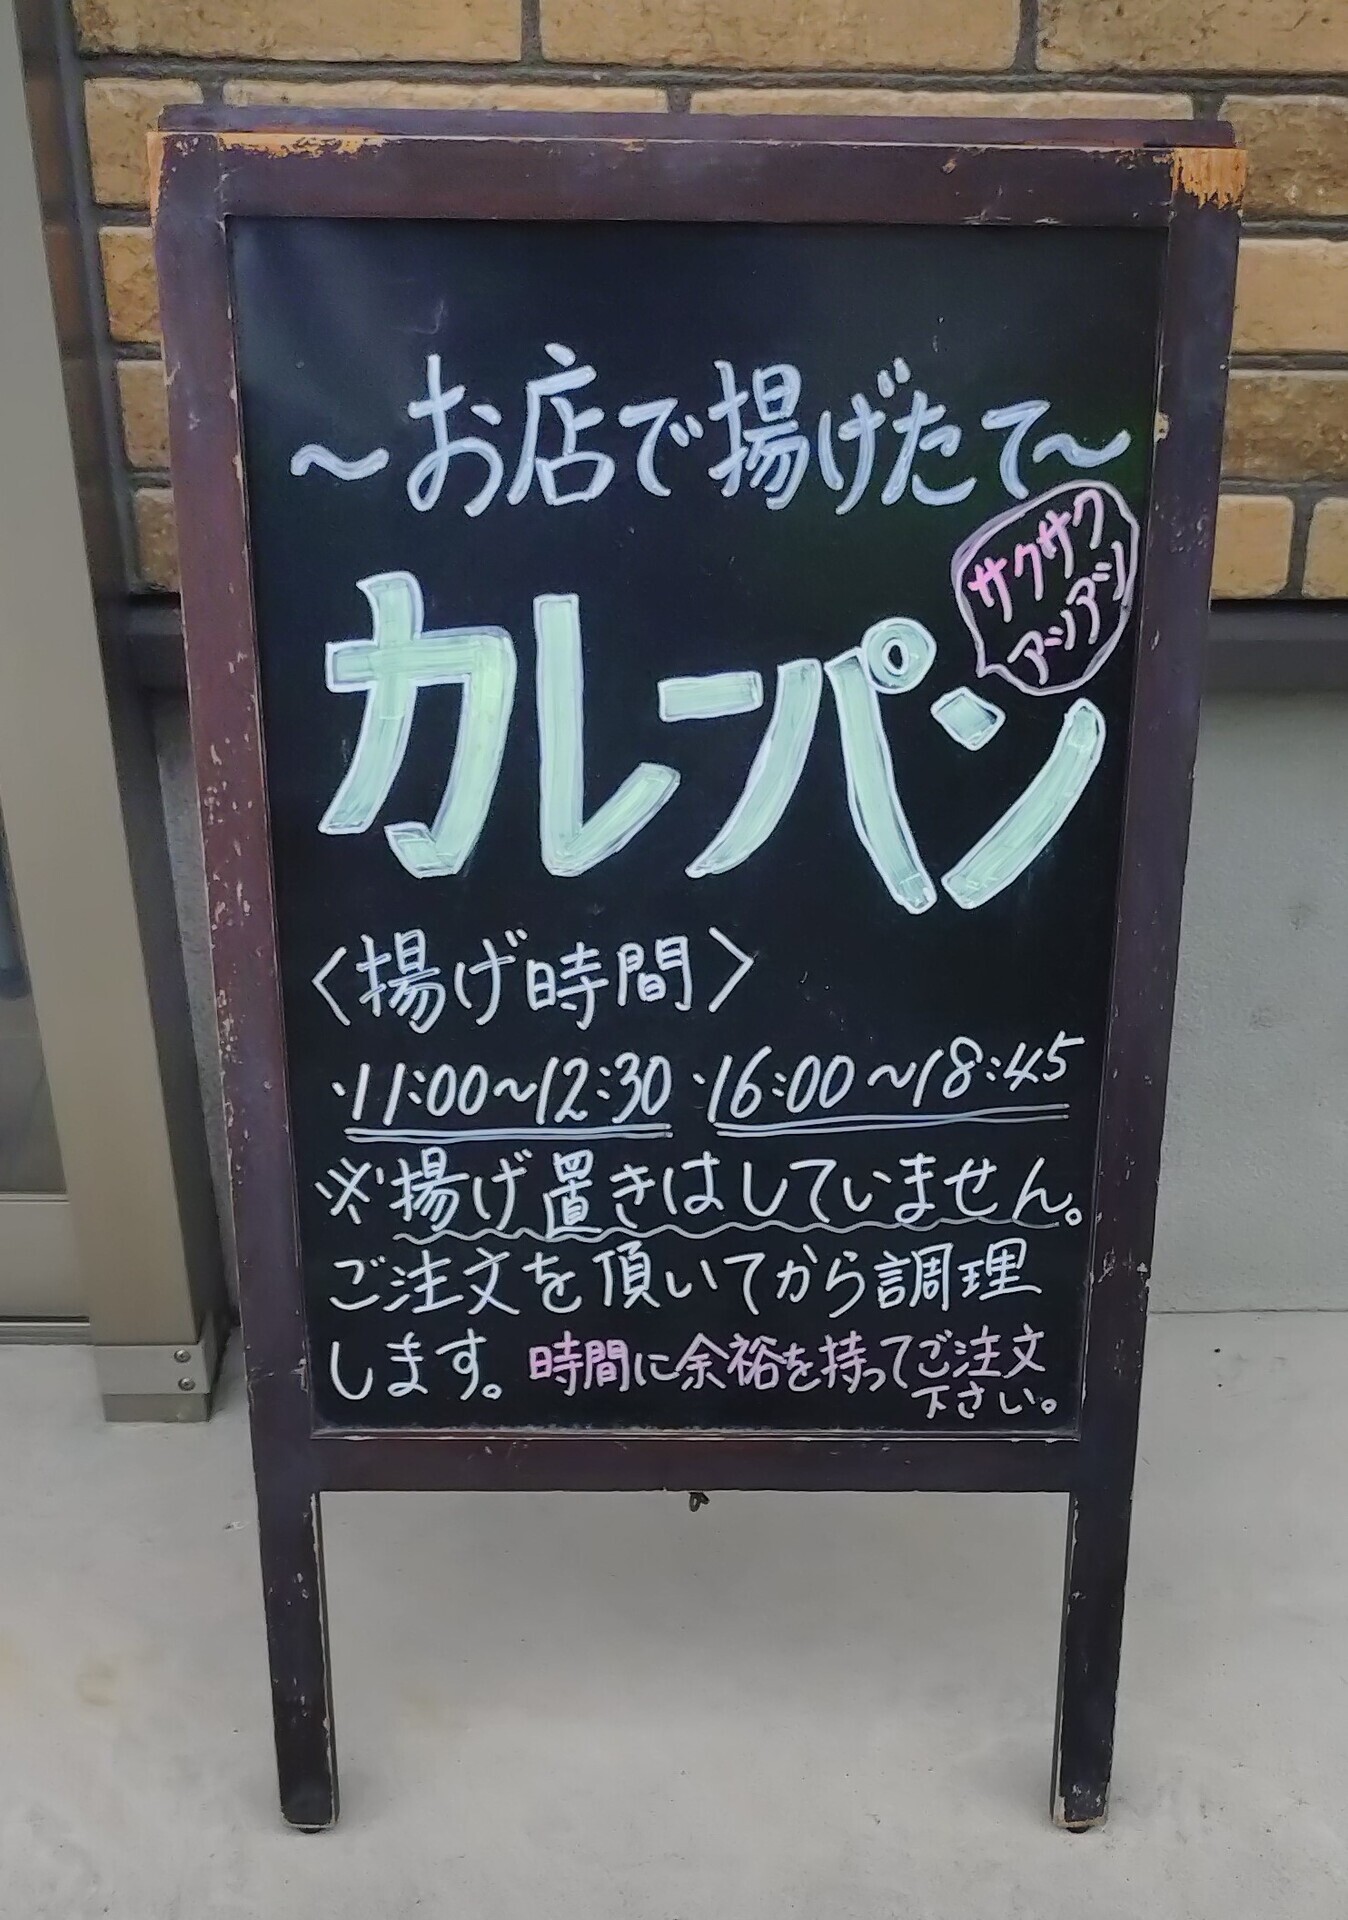 ～お店で揚げたて～
サクサク
アツアツ
カレーパン
〈揚げ時間〉
・11:00～12:30 ・16:00～18:45
※揚げ置きはしていません。
ご注文を頂いてから調理
します。時間に余裕を持ってご注文
下さい。